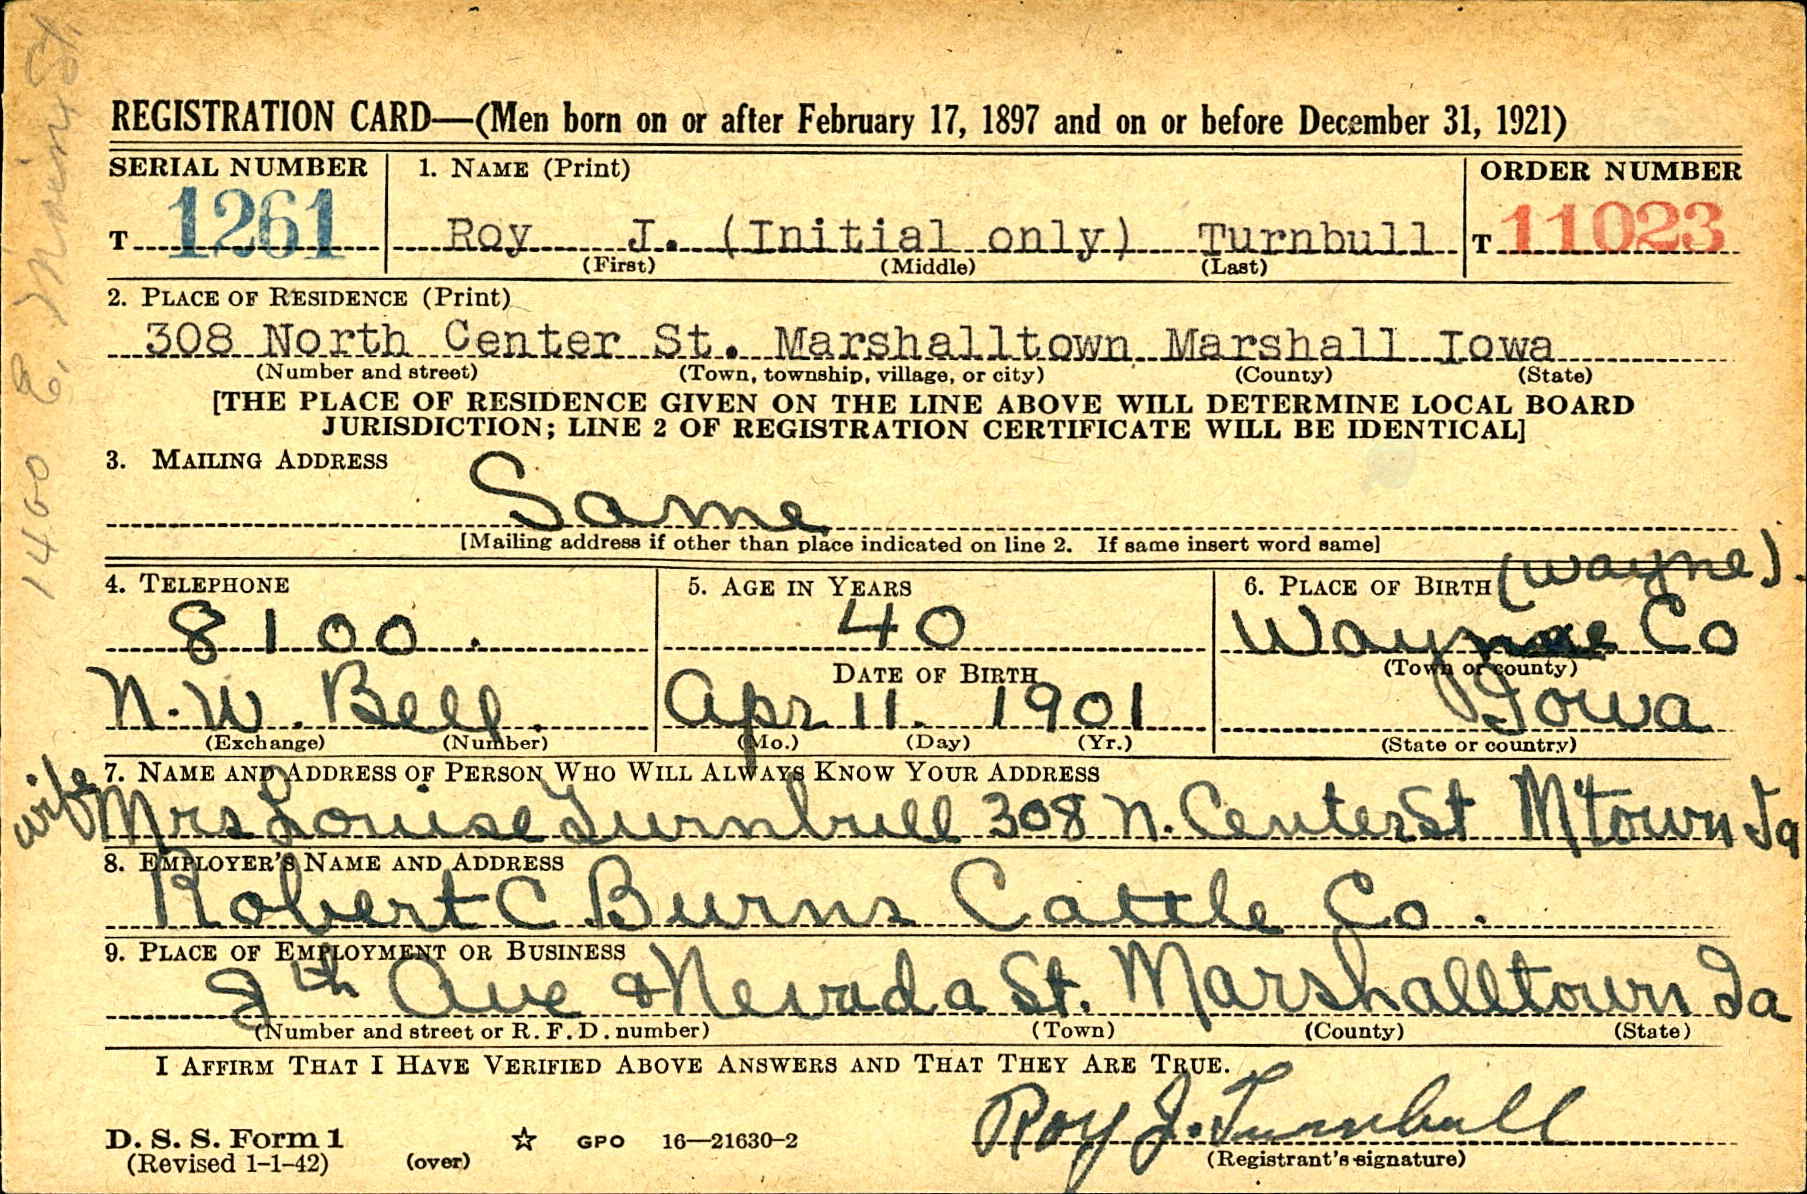 REGISTRATION CARD—(Men born on or after February 17, 1897 and on or before December 31, 1921)
SERIAL NUMBER 1. NAME (Print) ORDER NUMBER
T 1261 Roy J. (Initial only) Turnbull T 11023
(First) (Middle) (Last)
2. PLACE OF RESIDENCE (Print)
308 North Center St. Marshalltown Marshall Iowa
(Number and street) (Town, township, village, or city) (County) (State)
[THE PLACE OF RESIDENCE GIVEN ON THE LINE ABOVE WILL DETERMINE LOCAL BOARD
JURISDICTION; LINE 2 OF REGISTRATION CERTIFICATE WILL BE IDENTICAL]
3. MAILING ADDRESS
Same
[Mailing address if other than place indicated on line 2. If same insert word same]
4. TELEPHONE 5. AGE IN YEARS 6. PLACE OF BIRTH (Wayne).
8100. 40 Wayne Co
DATE OF BIRTH (Town or county)
N.W. Bell. Apr 11. 1901 Iowa
(Exchange) (Number) (Mo.) (Day) (Yr.) (State or country)
7. NAME AND ADDRESS OF PERSON WHO WILL ALWAYS KNOW YOUR ADDRESS
wife Mrs Louise Turnbull 308 N. Center St M'town Ia
8. EMPLOYER'S NAME AND ADDRESS
Robert C Burns Cattle Co.
9. PLACE OF EMPLOYMENT OR BUSINESS
th Ave & Nevada St. Marshalltown Ia
(Number and street or R. F. D. number) (Town) (County) (State)
I AFFIRM THAT I HAVE VERIFIED ABOVE ANSWERS AND THAT THEY ARE TRUE.
Roy J. Turnbull
D. S. S. Form 1 ☆ GPO 16—21630-2
(Revised 1-1-42) (over) (Registrant's signature)
1400 E. St.